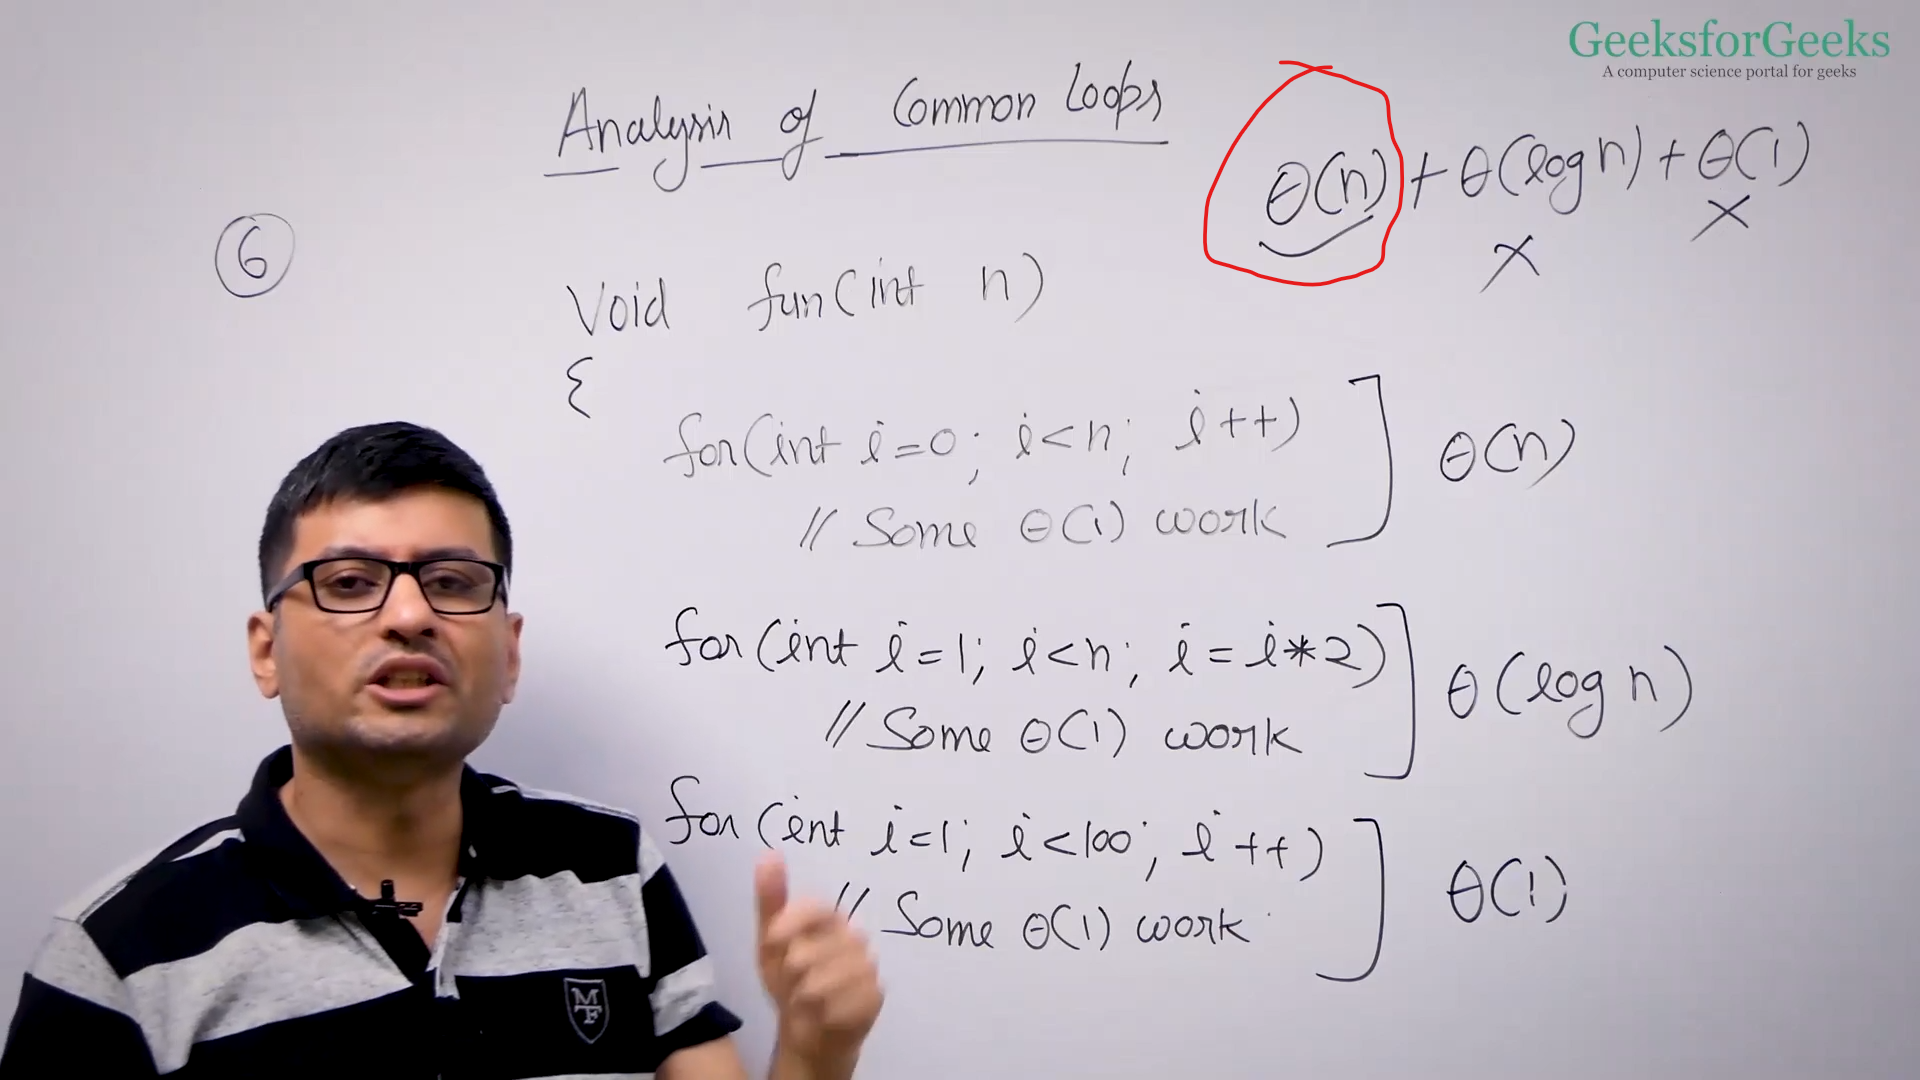 GeeksforGeeks
A computer science portal for geeks
Analysis of Common Loops
θ(n) + θ(log n) + θ(1)
X X
6
Void fun(int n)
{
for(int i=0; i<n; i++)
// Some θ(1) work
θ(n)
for(int i=1; i<n; i=i*2)
// Some θ(1) work
θ(log n)
for(int i=1; i<100; i++)
// Some θ(1) work
θ(1)
MTF